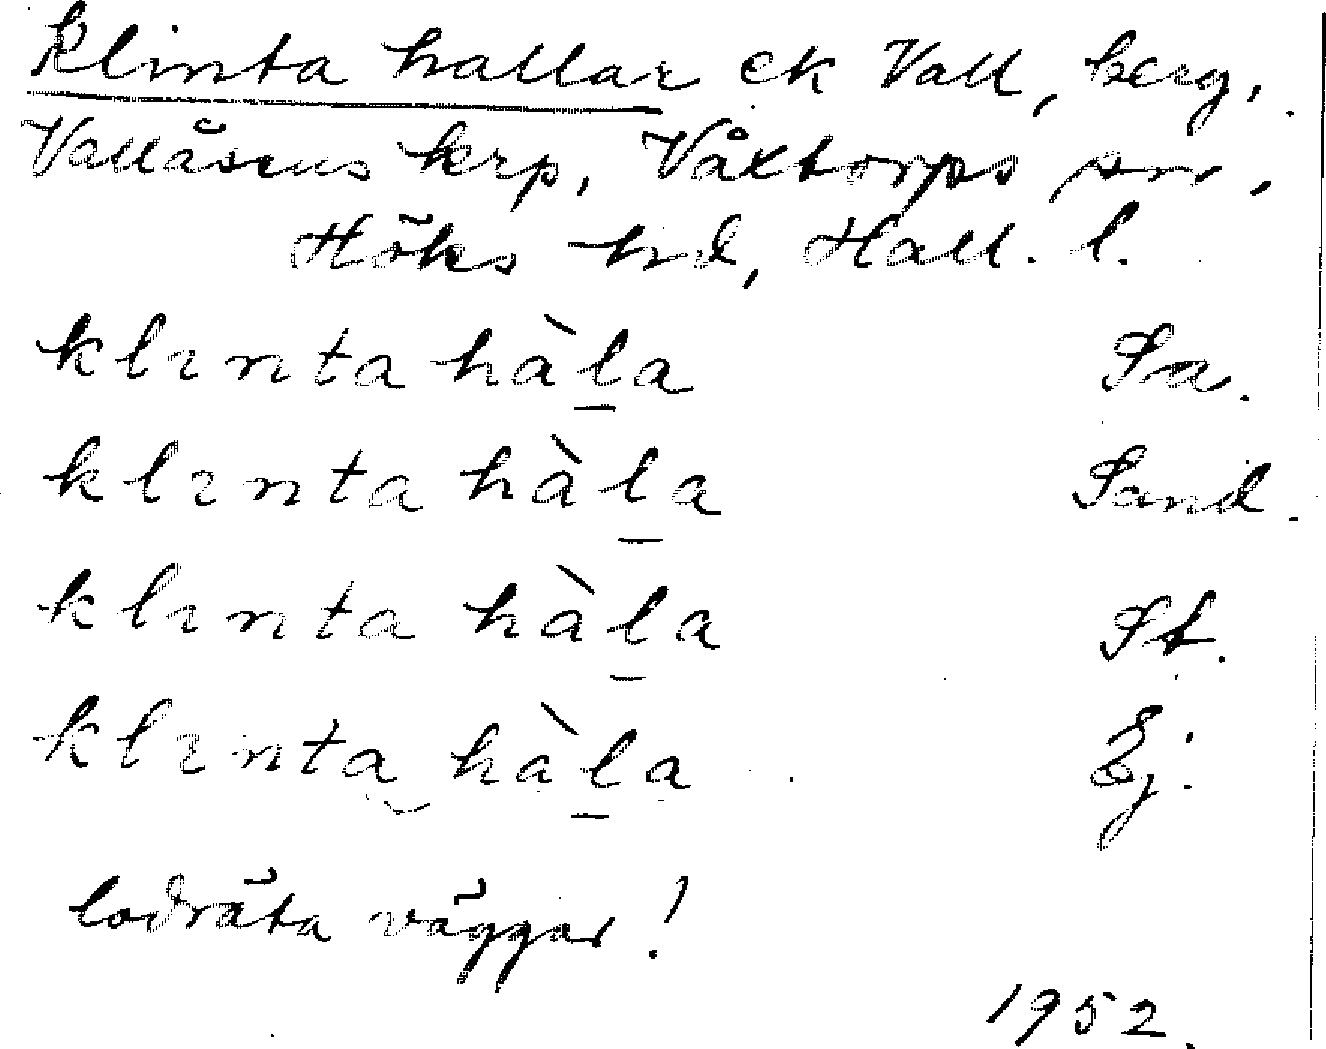 Klinta hallar ek Vall, berg,
Vallåsens krp, Våxtorps sn,
Höks hd, Hall. l.
klınta hàl̠a Sa.
klınta hàl̠a Sand.
klınta hàl̠a St.
klınta hàl̠a Ej.
lodräta väggar!
1952.